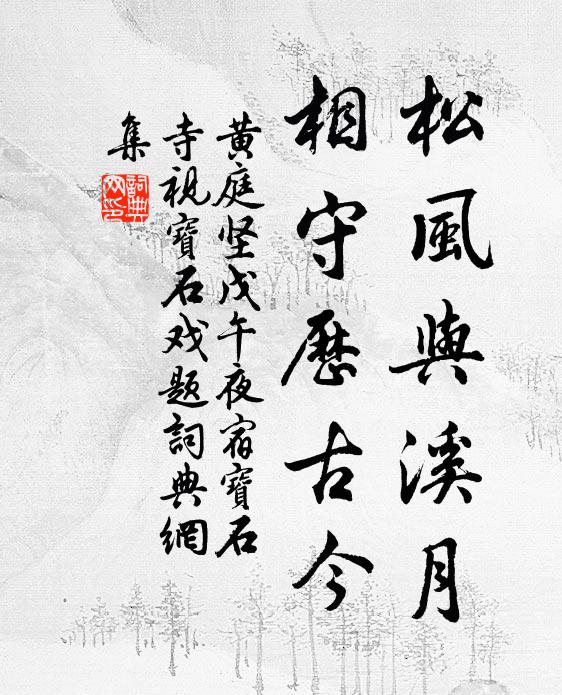 松風與溪月
相守歷古今
黄庭坚戊午夜宿寶石
寺視寶石戏题詞典網
集
詞典
网印